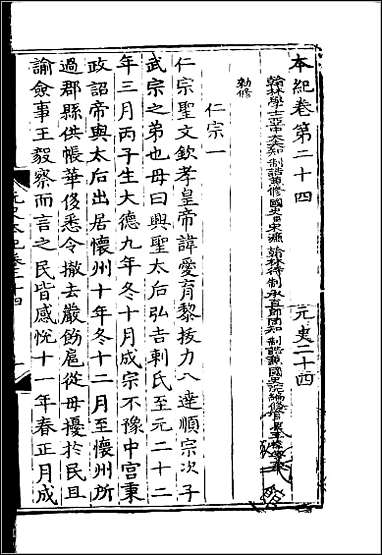 本紀卷第二十四
元史二十四
翰林學士亞中大夫知制誥兼修國史臣宋濂 翰林待制承直郎同知制誥兼國史院編修官臣王禕等奉
勑修
仁宗一
仁宗聖文欽孝皇帝諱愛育黎拔力八達順宗次子
武宗之弟也母曰興聖太后弘吉剌氏至元二十二
年三月丙子生大德九年冬十月成宗不豫中宮秉
政詔帝與太后出居懷州十年冬十二月至懷州所
過郡縣供帳華侈悉令撤去嚴飭扈從毋擾於民且
諭僉事王毅察而言之民皆感悅十一年春正月成